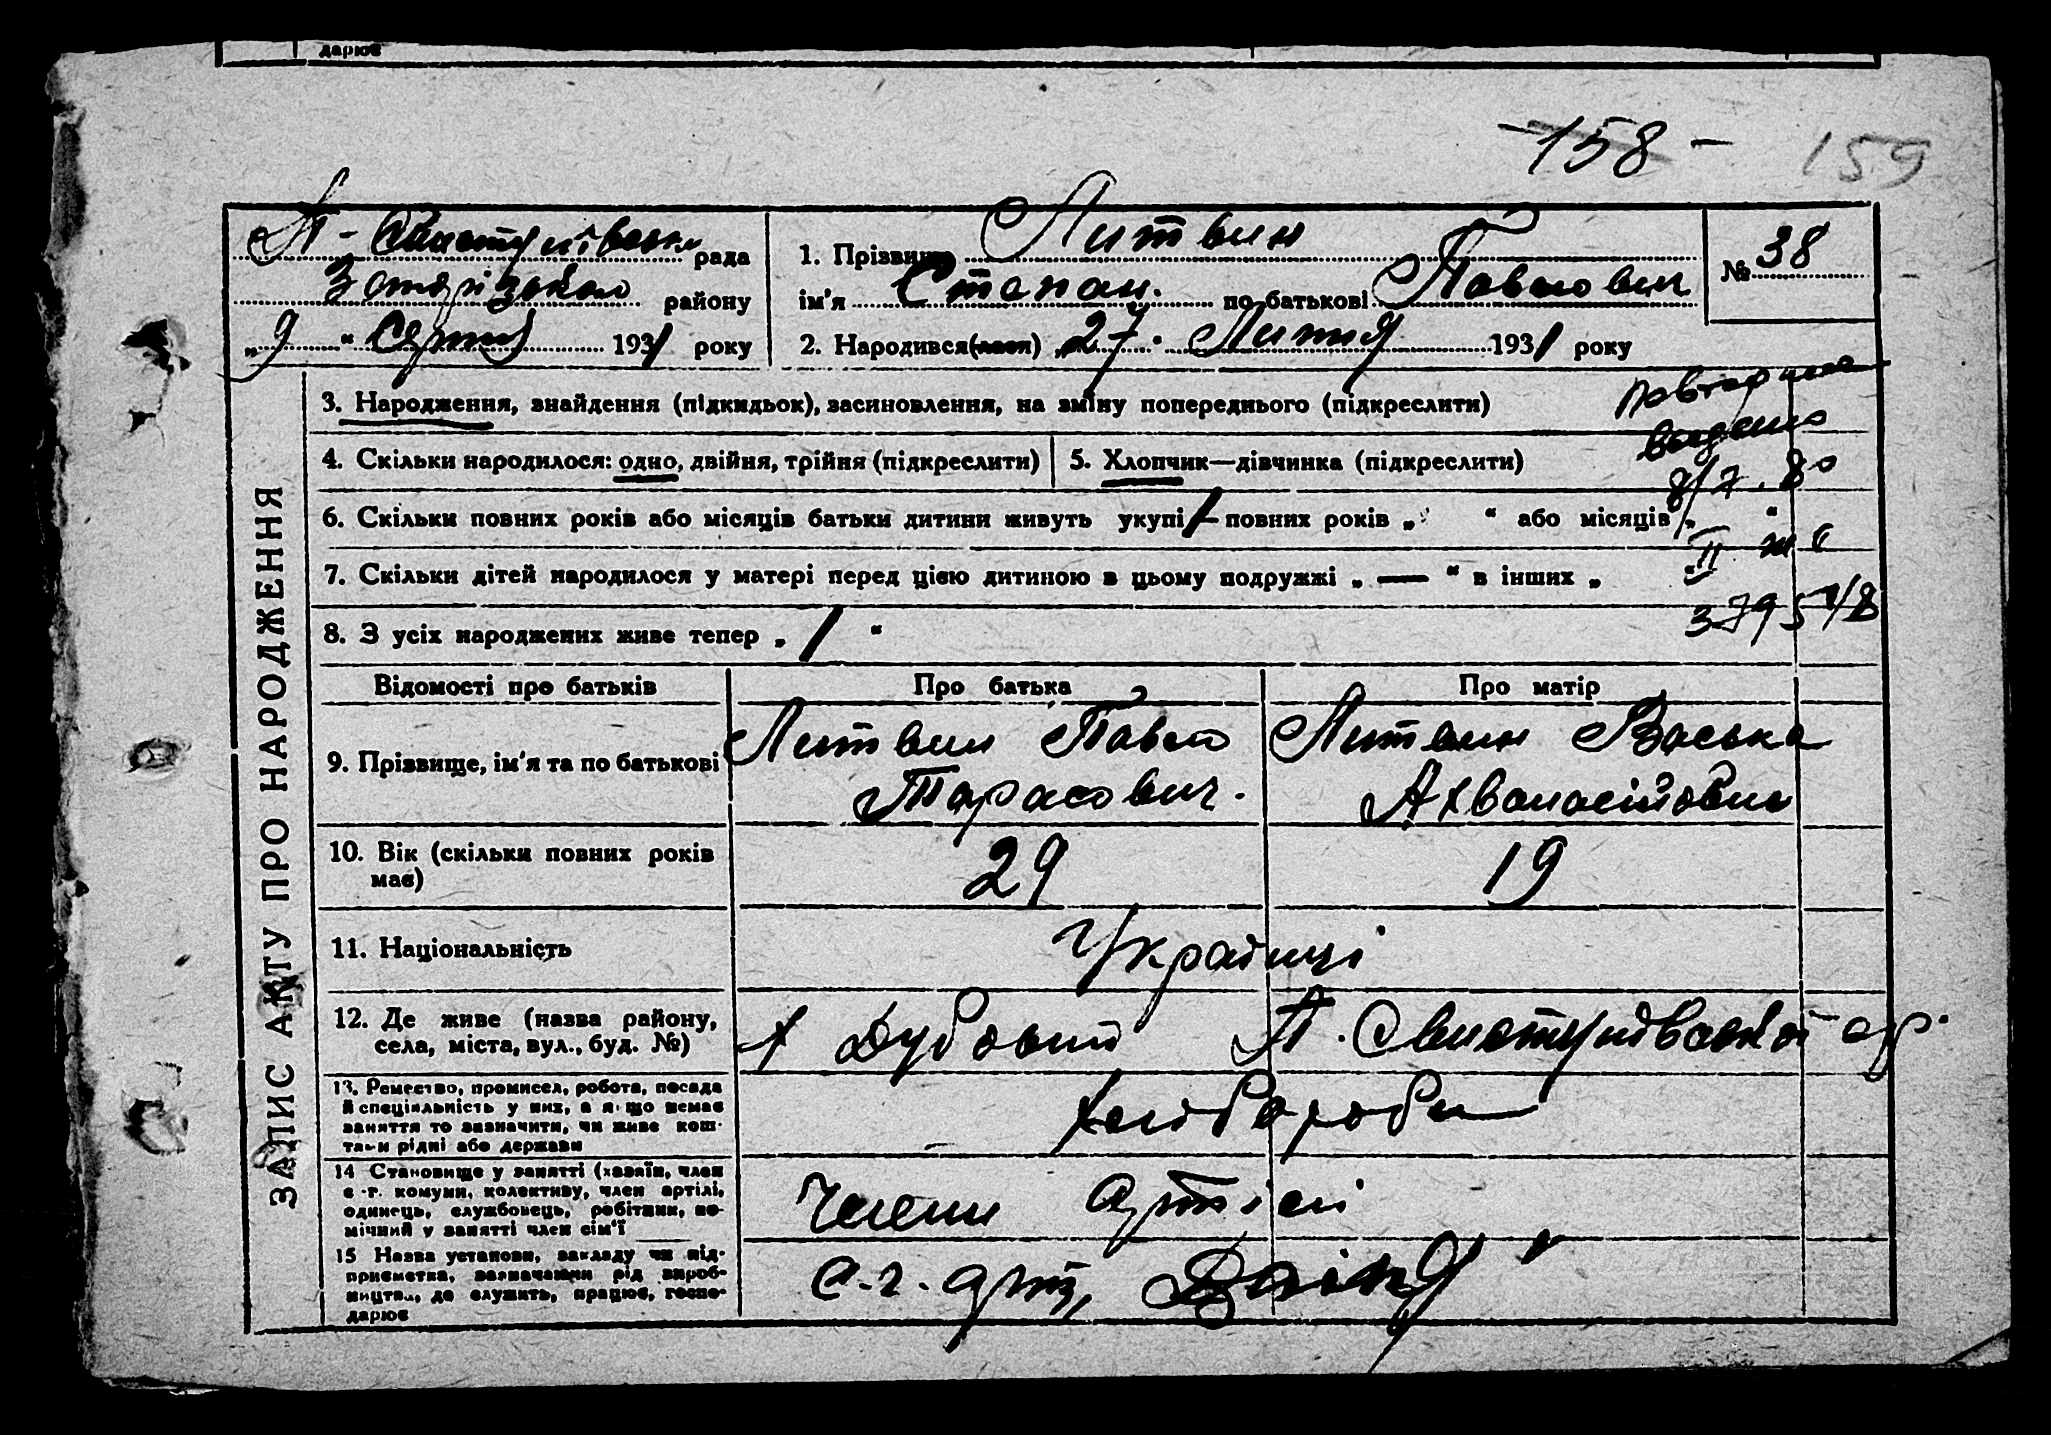 дарює
- 158 - 159
Литвин
1. Прізвище
№ 38
рада
району
ім'я Степан. по батькові Павлович
„9“ Серпня 1931 року
2. Народився(лася) „27. Липня 1931 року
повторне
3. Народження, знайдення (підкидьок), засиновлення, на зміну попереднього (підкреслити)
видано
4. Скільки народилося: одно, двійня, трійня (підкреслити)
5. Хлопчик—дівчинка (підкреслити)
8/7. 80
6. Скільки повних років або місяців батьки дитини живуть укупі 1 повних років „ “ або місяців „ “
7. Скільки дітей народилося у матері перед цією дитиною в цьому подружжі „ — “ в інших „ “
II
8. З усіх народжених живе тепер „ 1 “
Відомості про батьків
Про батька
Про матір
9. Прізвище, ім'я та по батькові
Литвин Павло
Тарасович.
Литвин Васька
Ахванасіївна
10. Вік (скільки повних років має)
29
19
11. Національність
Українці
12. Де живе (назва району,
села, міста, вул., буд. №)
х Дубовий П. Свистунівської с/р.
13. Ремество, промисел, робота, посада
й спеціяльність у них, а якщо немає
заняття то зазначити, чи живе кош-
тами рідні або держави
Хлібороби
14 Становище у занятті (хазяїн, член
с.-г. комуни, колективу, член артілі,
одинець, службовець, робітник, по-
мічний у занятті член сім'ї
Члени Артілі
15 Назва установи, закладу чи під-
приємства, зазначаючи рід вироб-
ництва, де служить, працює, госпо-
дарює
С.-г. арт,
ЗАПИС АКТУ ПРО НАРОДЖЕННЯ